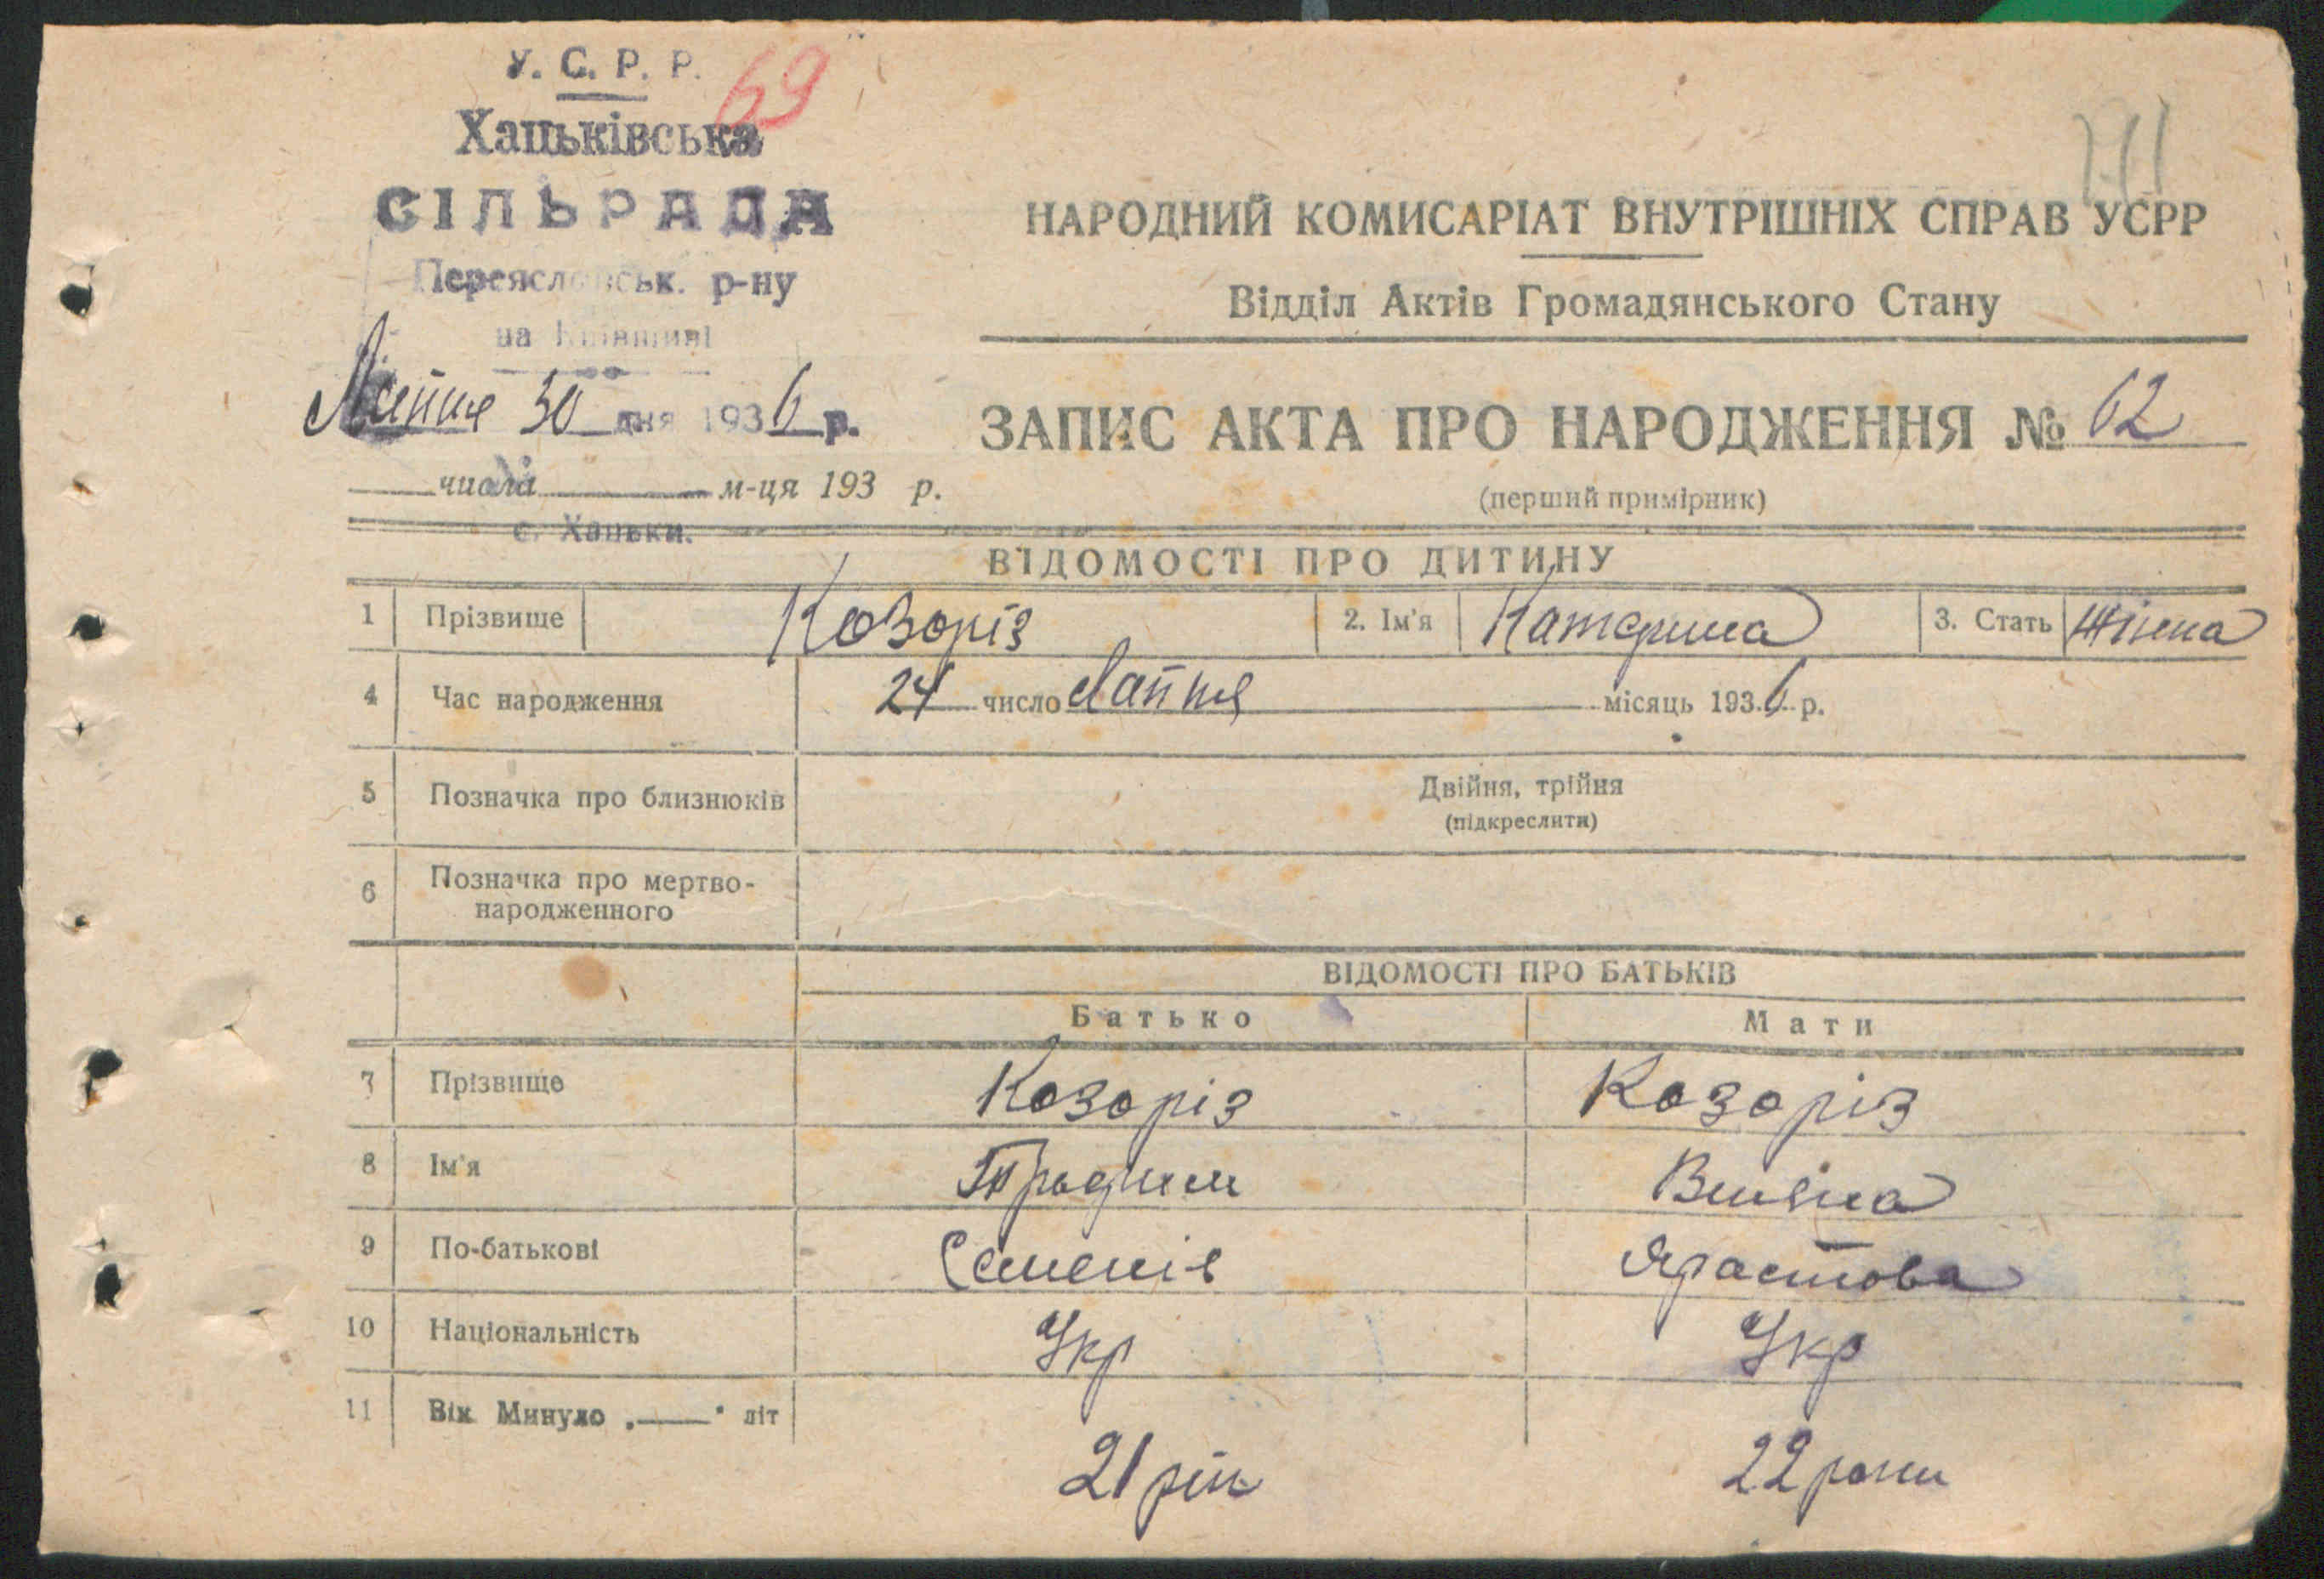 У. С. Р. Р.
69
Хацьківська
СІЛЬРАДА
Переяславськ. р-ну
на Київщині
Липня 30 дня 1936 р.
числа м-ця 193 р.
с. Хацьки.
НАРОДНИЙ КОМИСАРІАТ ВНУТРІШНІХ СПРАВ УСРР
Відділ Актів Громадянського Стану
ЗАПИС АКТА ПРО НАРОДЖЕННЯ № 62
(перший примірник)
ВІДОМОСТІ ПРО ДИТИНУ
1 Прізвище Козоріз 2. Ім'я Катерина 3. Стать Жіноча
4 Час народження 24 число Липня місяць 1936 р.
5 Позначка про близнюків Двійня, трійня
(підкреслити)
6 Позначка про мертво-
народженного
ВІДОМОСТІ ПРО БАТЬКІВ
Батько Мати
7 Прізвище Козоріз Козоріз
8 Ім'я
9 По-батькові Семенів
10 Національність Укр Укр
11 Вік Минуло „ — " літ
21 рік 22 роки